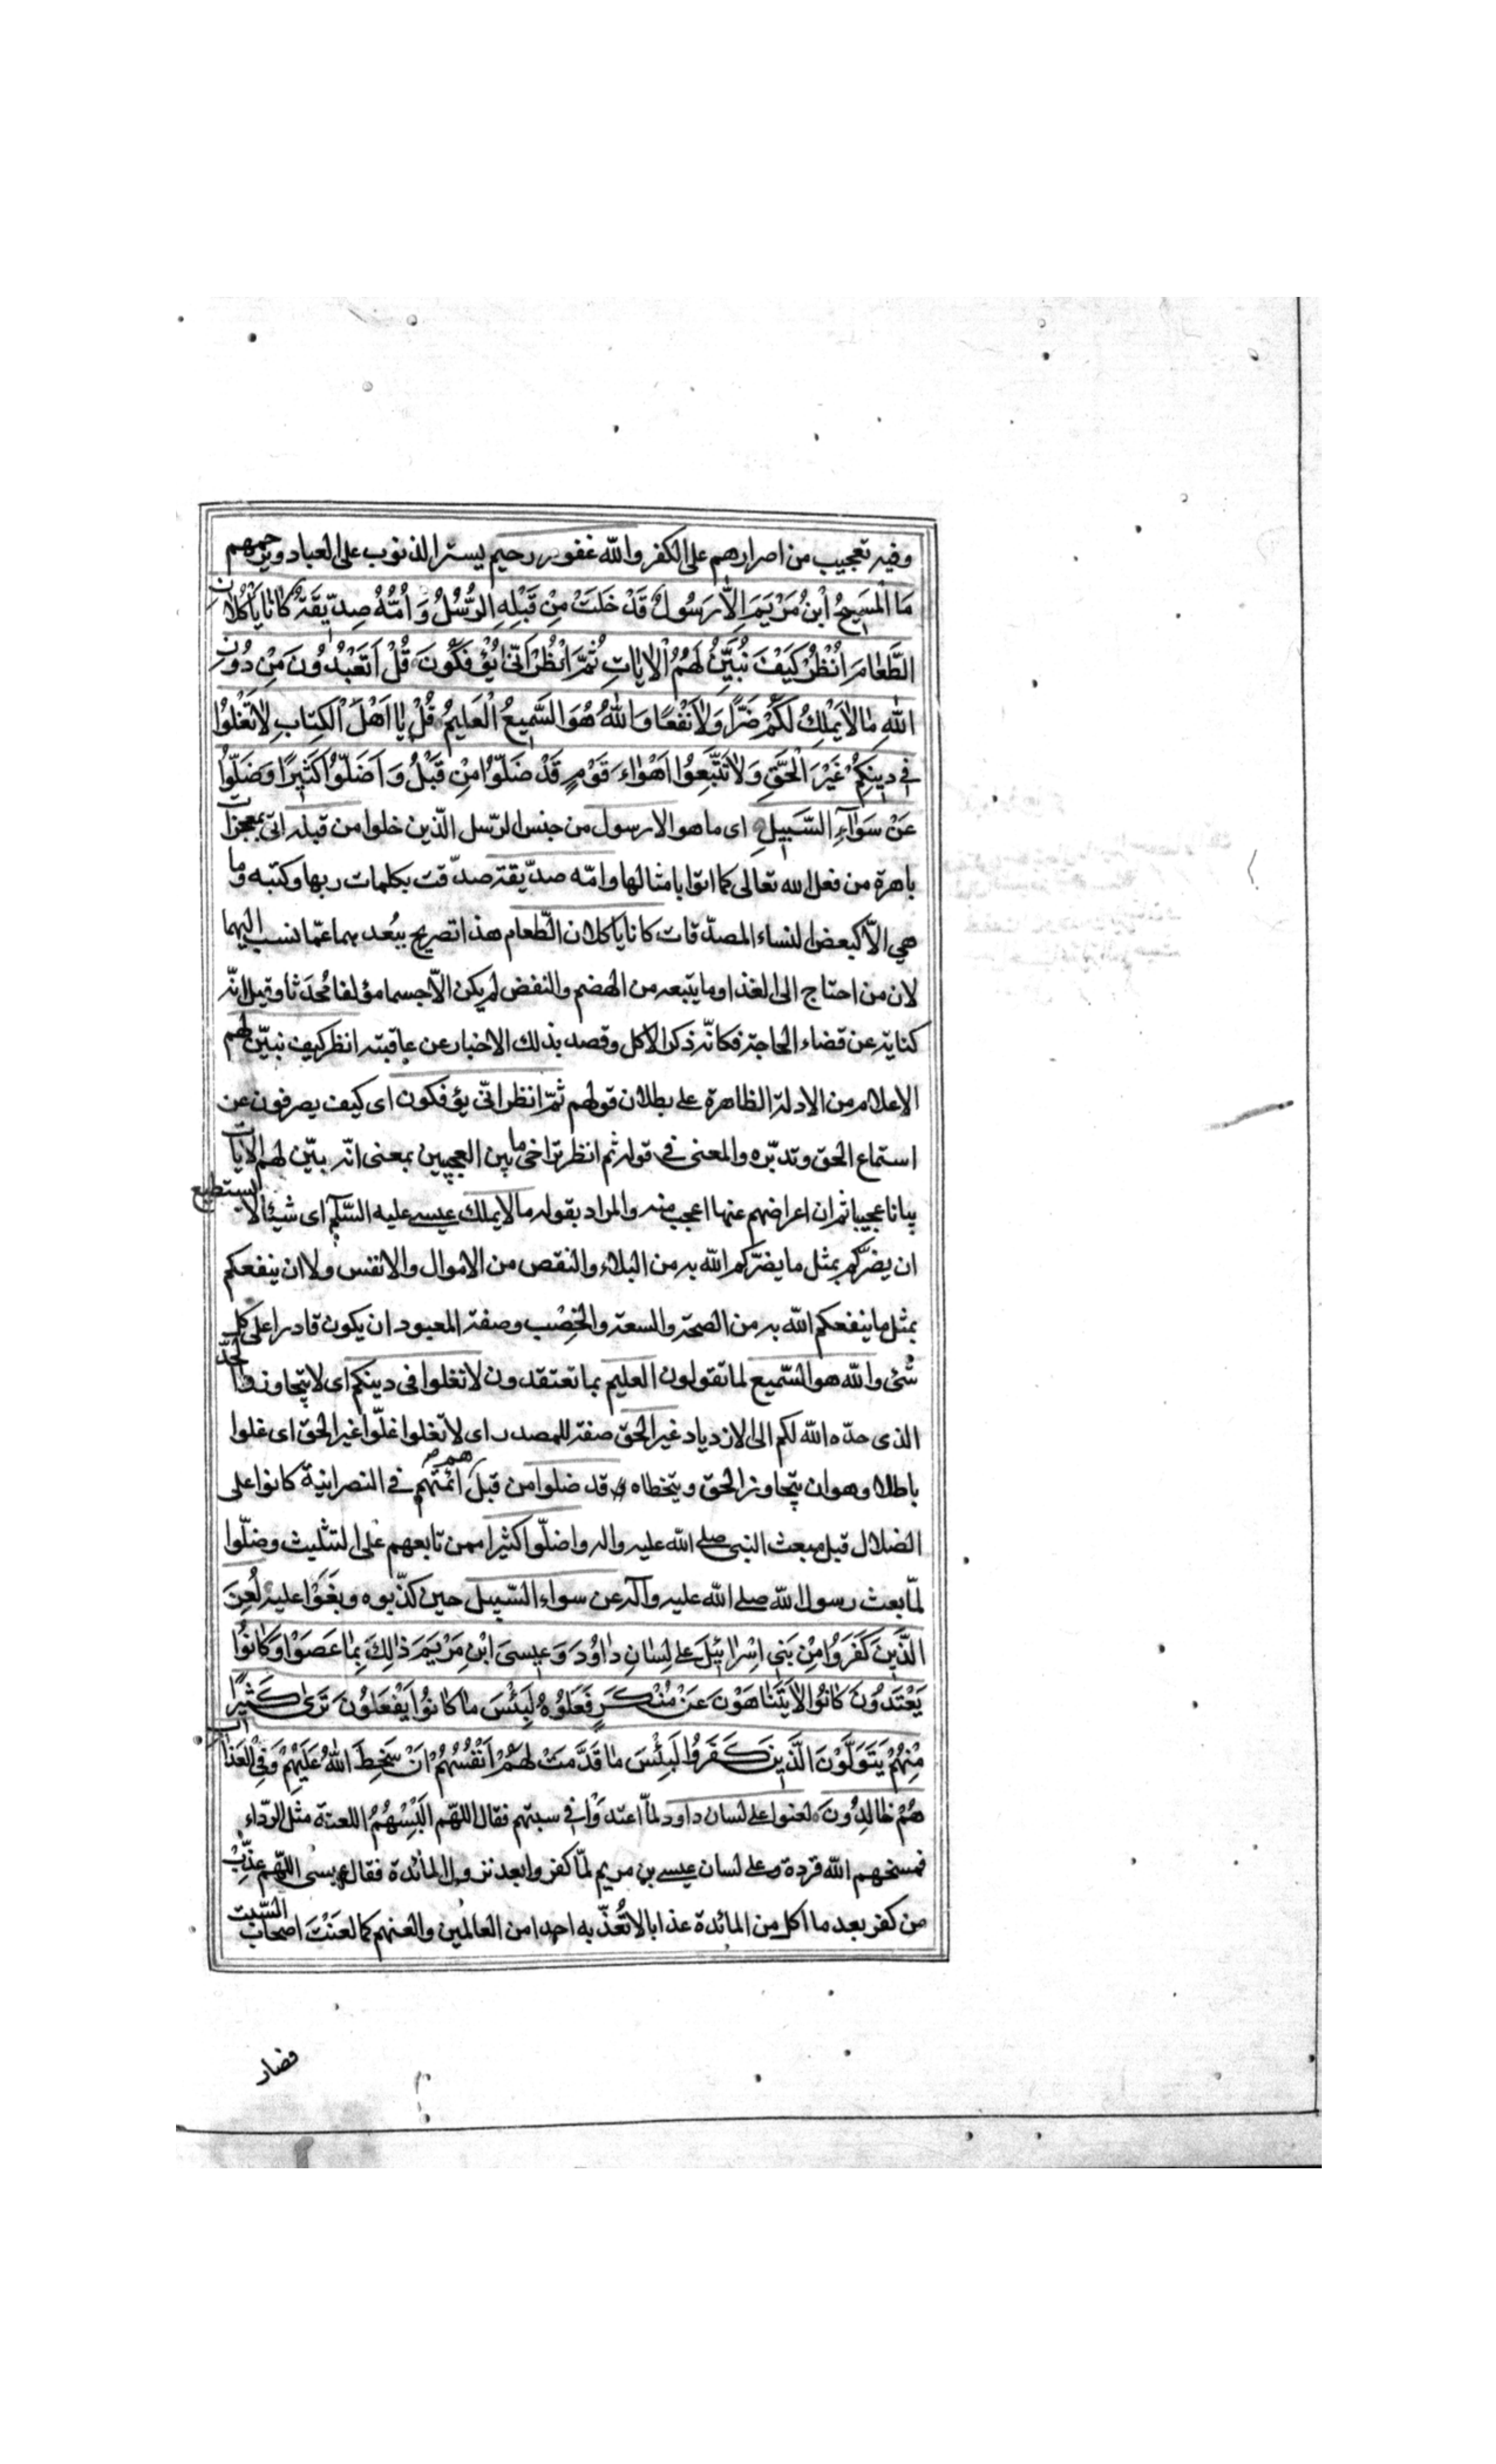 وفيه تعجيب من اصرارهم على الكفر والله غفور رحيم يستر الذنوب على العباد ويرحمهم
مَا الْمَسِيحُ ابْنُ مَرْيَمَ اِلاّٰ رَسُولٌ قَدْ خَلَتْ مِنْ قَبْلِهِ الرُّسُلُ وَ اُمُّهُ صِدّيقَةٌ كٰانٰا يَأْكُلاٰنِ
الطَّعٰامَ اُنْظُرْ كَيْفَ نُبَيِّنُ لَهُمُ الْاٰيٰاتِ ثُمَّ انْظُرْ اَنّٰى يُؤْفَكُونَ قُلْ اَتَعْبُدُونَ مِنْ دُونِ
اللّٰهِ مٰا لاٰ يَمْلِكُ لَكُمْ ضَرًّا وَلاٰ نَفْعًا وَاللّٰهُ هُوَ السَّمِيعُ الْعَلِيمُ قُلْ يٰا اَهْلَ الْكِتٰابِ لاٰ تَغْلُوا
فِي دِينِكُمْ غَيْرَ الْحَقِّ وَلاٰ تَتَّبِعُوا اَهْوٰاءَ قَوْمٍ قَدْ ضَلُّوا مِنْ قَبْلُ وَ اَضَلُّوا كَثِيرًا وَضَلُّوا
عَنْ سَوٰآءِ السَّبِيلِ اى ما هو الا رسول من جنس الرّسل الّذين خلوا من قبله اتى بمعجزات
باهرة من فعل الله تعالى كما اتوا بامثالها وامّه صدّيقة صدّقت بكلمات ربها وكتبه وما
هي الاّ كبعض النساء المصدّقات كانا ياكلان الطّعام هذا تصريح ببُعدهما عمّا نسب اليهما
لان من احتاج الى الغذا وما يتبعه من الهضم والنفض لم يكن الاّ جسما مؤلفا مُحدَثا وقيل انّه
كناية عن قضاء الحاجة فكانّه ذكر الاكل وقصد بذلك الاخبار عن عاقبته انظر كيف نبيّن لهم
الاعلام من الادلة الظاهرة على بطلان قولهم ثمّ انظر انّى يؤفكون اى كيف يصرفون عن
استماع الحق وتدبّره والمعنى في قوله ثم انظر تراخى ما بين العجبين بمعنى انّه بيّن لهم الايات
بيانا عجيبا ثم ان اعراضهم عنها اعجب منه والمراد بقوله ما لا يملك عيسى عليه السّلم اى شيئا لا يستطيع
ان يضرّكم بمثل ما يضرّكم الله به من البلاء والنقص من الاموال والانفس ولا ان ينفعكم
بمثل ما ينفعكم الله به من الصحة والسعة والخِصْب وصفة المعبود ان يكون قادرا على كل
شئ والله هو السّميع لما تقولون العليم بما تعتقدون لا تغلوا فى دينكم اى لا يتجاوزوا الحدّ
الذى حدّه الله لكم الى الازدياد غير الحق صفة للمصدر اى لا تغلوا غلّوا غير الحق اى غلوا
باطلا وهو ان يتجاوز الحق ويتخطاه قد ضلوا من قبل هم ائمّتهم في النصرانية كانوا على
الضلال قبل مبعث النبى صلى الله عليه واله واضلّوا كثيرا ممن تابعهم على التثليث وضلّوا
لمّا بعث رسول الله صلى الله عليه وآله عن سواء السّبيل حين كذّبوه وبغَوْا عليه لُعِنَ
الَّذِينَ كَفَرُوا مِنْ بَنِي اِسْرٰائِيلَ عَلى لِسٰانِ دٰاوُدَ وَ عِيسَى ابْنِ مَرْيَمَ ذٰلِكَ بِمٰا عَصَوْا وَكٰانُوا
يَعْتَدُونَ كٰانُوا لاٰ يَتَنٰاهَوْنَ عَنْ مُنْكَرٍ فَعَلُوهُ لَبِئْسَ مٰا كٰانُوا يَفْعَلُونَ تَرىٰ كَثِيرًا
مِنْهُمْ يَتَوَلَّوْنَ الَّذِينَ كَفَرُوا لَبِئْسَ مٰا قَدَّمَتْ لَهُمْ اَنْفُسُهُمْ اَنْ سَخِطَ اللّٰهُ عَلَيْهِمْ وَفِي الْعَذٰابِ
هُمْ خٰالِدُونَ لعنوا على لسان داود لمّا اعتدَوْا في سبتهم فقال اللهّم اَلْبِسْهُمُ اللعنة مثل الرّداء
فمسخهم الله قردة وعلى لسان عيسى بن مريم لمّا كفروا بعد نزول المائدة فقال عيسى اللّهم عذّب
من كفر بعد ما اكل من المائدة عذابا لا تُعذّبه احدا من العالمين والعنهم كما لعَنْتَ اصحاب السّبت
فصار